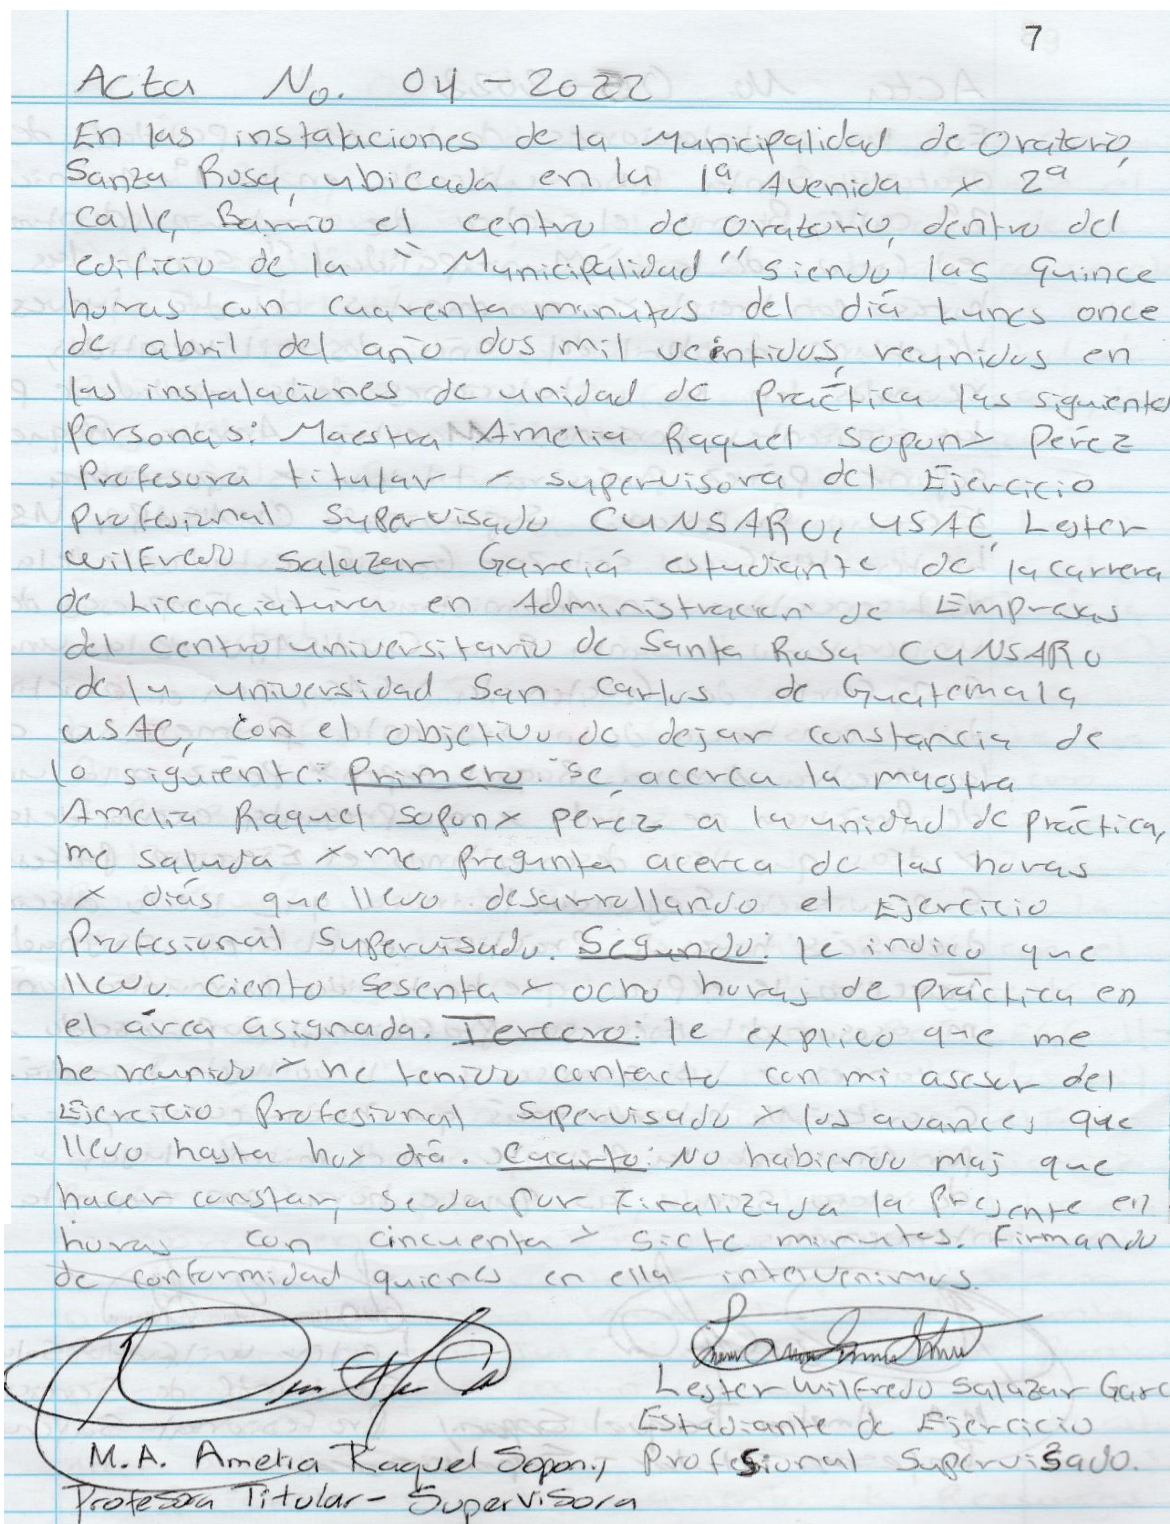 7
Acta No. 04-2022
En las instalaciones de la Municipalidad de Oratorio,
Santa Rosa, ubicada en la 1ª. Avenida y 2ª
calle, Barrio el centro de Oratorio, dentro del
edificio de la "Municipalidad" siendo las quince
horas con cuarenta minutos del diá Lunes once
de abril del año dos mil veintidos, reunidos en
las instalaciones de unidad de práctica las siguientes
personas: Maestra Amelia Raquel Sopony Peréz
Profesora titular - supervisora del Ejercicio
Profesional Supervisado CUNSARO, USAC, Lester
Wilfredo Salazar Garciá estudiante de la carrera
de Licenciatura en Administración de Empresas
del Centro universitario de Santa Rosa CUNSARO
de la universidad San Carlos de Guatemala
USAC, con el objetivo de dejar constancia de
lo siguiente: Primero: se acerca la maestra
Amelia Raquel Sopony Peréz a la unidad de práctica,
me saluda y me pregunta acerca de las horas
y diás que llevo desarrollando el Ejercicio
Profesional Supervisado. Segundo: le indico que
llevo ciento sesenta y ocho horas de práctica en
el área asignada. Tercero: le explico que me
he reunido y he tenido contacto con mi asesor del
Ejercicio Profesional Supervisado y los avances que
llevo hasta hoy diá. Cuarto: No habiendo mas que
hacer constar, se da por finalizada la presente en
horas con cincuenta y siete minutos. Firmando
de conformidad quienes en ella intervenimos.
Lester Wilfredo Salazar Garc
Estudiante de Ejercicio
Profesional Supervisado.
M.A. Amelia Raquel Sopony
Profesora Titular - Supervisora